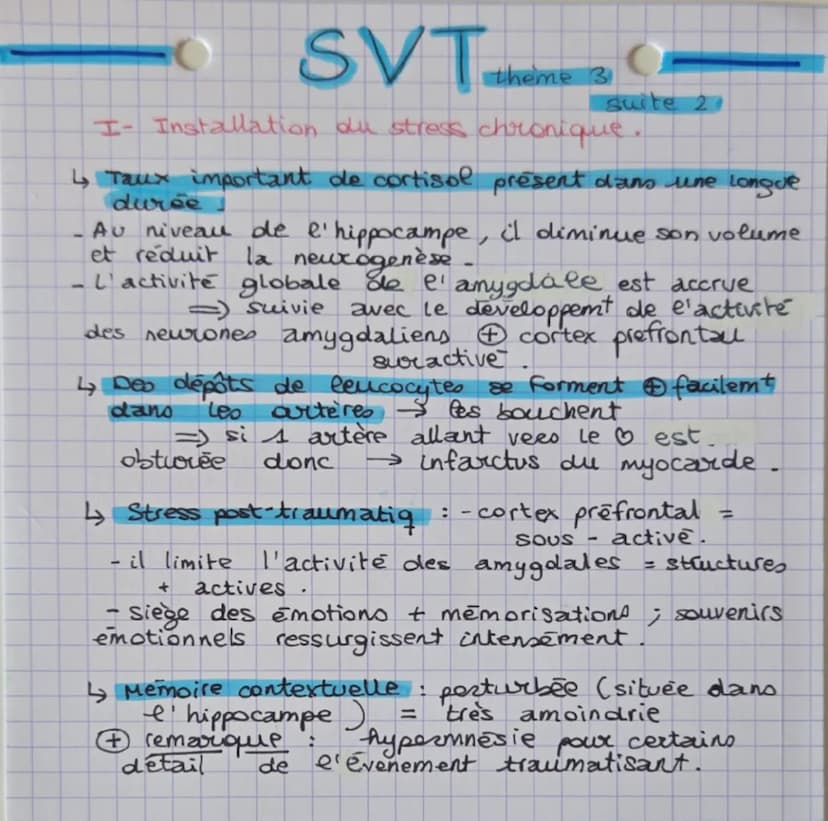 SVT thème 3
suite 2
I- Installation du stress chronique.
↳ Taux important de cortisol présent dans une longue
durée :
- Au niveau de l'hippocampe, il diminue son volume
et réduit la neurogenèse.
- L'activité globale de l'amygdale est accrue
=> suivie avec le developpemt de l'activité
des neurones amygdaliens ⊕ cortex prefrontal
suractivé.
↳ Des dépôts de leucocytes se forment ⊕ facilemt
dans les artères → les bouchent
=> si 1 artère allant vers le ♡ est
obturée donc → infarctus du myocarde.
↳ Stress post-traumatiq : - cortex préfrontal =
sous-activé.
- il limite l'activité des amygdales = structures
+ actives.
- siège des émotions + mémorisations ; souvenirs
émotionnels ressurgissent intensément.
↳ Mémoire contextuelle : perturbée (située dans
l'hippocampe) = très amoindrie
⊕ remarque : hypermnésie pour certains
détail de l'évenement traumatisant.